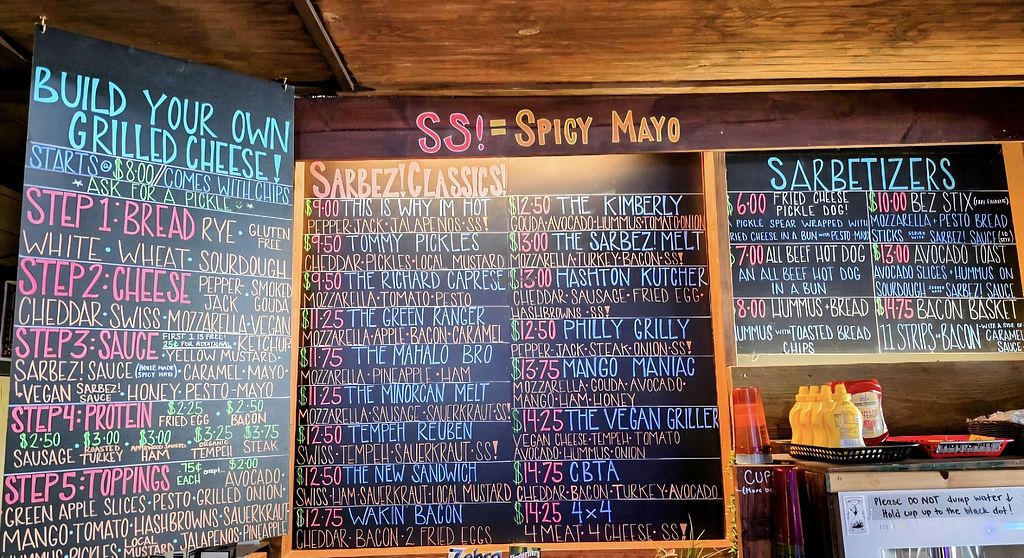 BUILD YOUR OWN
GRILLED CHEESE!
STARTS@ $8.00//COMES WITH CHIPS
ASK FOR A PICKLE
STEP 1: BREAD RYE · GLUTEN FREE
WHITE · WHEAT · SOURDOUGH
STEP 2: CHEESE PEPPER JACK · SMOKED GOUDA
CHEDDAR · SWISS · MOZZARELLA · VEGAN
STEP 3: SAUCE FIRST 1 IS FREE! 25¢ FOR ADDITIONAL · KETCHUP
YELLOW MUSTARD ·
SARBEZ! SAUCE (HOUSE MADE SPICY MAYO) · CARAMEL · MAYO ·
VEGAN SARBEZ! SAUCE · HONEY · PESTO · MAYO
STEP 4: PROTEIN $2.25 FRIED EGG · $2.50 BACON
$2.50 SAUSAGE · $3.00 ROASTED TURKEY · $3.00 HAM · $3.25 ORGANIC TEMPEH · $3.75 STEAK
STEP 5: TOPPINGS 75¢ EACH EXCEPT... $2.00 AVOCADO ·
GREEN APPLE SLICES · PESTO · GRILLED ONION ·
MANGO · TOMATO · HASHBROWNS · SAUERKRAUT
HUMMUS · PICKLES · LOCAL MUSTARD · JALAPENOS · PINEAPPLE
SS! = SPICY MAYO
SARBEZ! CLASSICS!
$9.00 THIS IS WHY IM HOT
PEPPER JACK · JALAPENOS · SS!
$9.50 TOMMY PICKLES
CHEDDAR · PICKLES · LOCAL MUSTARD
$9.50 THE RICHARD CAPRESE
MOZZARELLA · TOMATO · PESTO
$11.25 THE GREEN RANGER
MOZZARELLA · APPLE · BACON · CARAMEL
$11.75 THE MAHALO BRO
MOZZARELLA · PINEAPPLE · HAM
$11.25 THE MINORCAN MELT
MOZZARELLA · SAUSAGE · SAUERKRAUT · SS!
$12.50 TEMPEH REUBEN
SWISS · TEMPEH · SAUERKRAUT · SS!
$12.50 THE NEW SANDWICH
SWISS · HAM · SAUERKRAUT · LOCAL MUSTARD
$12.75 WAKIN BACON
CHEDDAR · BACON · 2 FRIED EGGS
$12.50 THE KIMBERLY
GOUDA · AVOCADO · HUMMUS · TOMATO · ONION
$13.00 THE SARBEZ! MELT
MOZZARELLA · TURKEY · BACON · SS!
$13.00 HASHTON KUTCHER
CHEDDAR · SAUSAGE · FRIED EGG ·
HASHBROWNS · SS!
$12.50 PHILLY GRILLY
PEPPER JACK · STEAK · ONION · SS!
$13.75 MANGO MANIAC
MOZZARELLA · GOUDA · AVOCADO ·
MANGO · HAM · HONEY
$14.25 THE VEGAN GRILLER
VEGAN CHEESE · TEMPEH · TOMATO
AVOCADO · HUMMUS · ONION
$14.75 GBTA
CHEDDAR · BACON · TURKEY · AVOCADO
$14.25 4x4
4 MEAT · 4 CHEESE · SS!
SARBETIZERS
$6.00 FRIED CHEESE
PICKLE DOG!
PICKLE SPEAR WRAPPED WITH
FRIED CHEESE IN A BUN WITH PESTO MAYO
$7.00 ALL BEEF HOT DOG
AN ALL BEEF HOT DOG
IN A BUN
$8.00 HUMMUS + BREAD
HUMMUS WITH TOASTED BREAD
CHIPS
$10.00 BEZ STIX (FAN FAVORITE)
MOZZARELLA + PESTO BREAD
STICKS SERVED WITH SARBEZ! SAUCE
$13.00 AVOCADO TOAST
AVOCADO SLICES + HUMMUS ON
SOURDOUGH SARBEZ! SAUCE
$14.75 BACON BASKET
11 STRIPS OF BACON WITH A SIDE OF CARAMEL SAUCE
CUP
Please DO NOT dump water ↓
Hold cup up to the black dot!